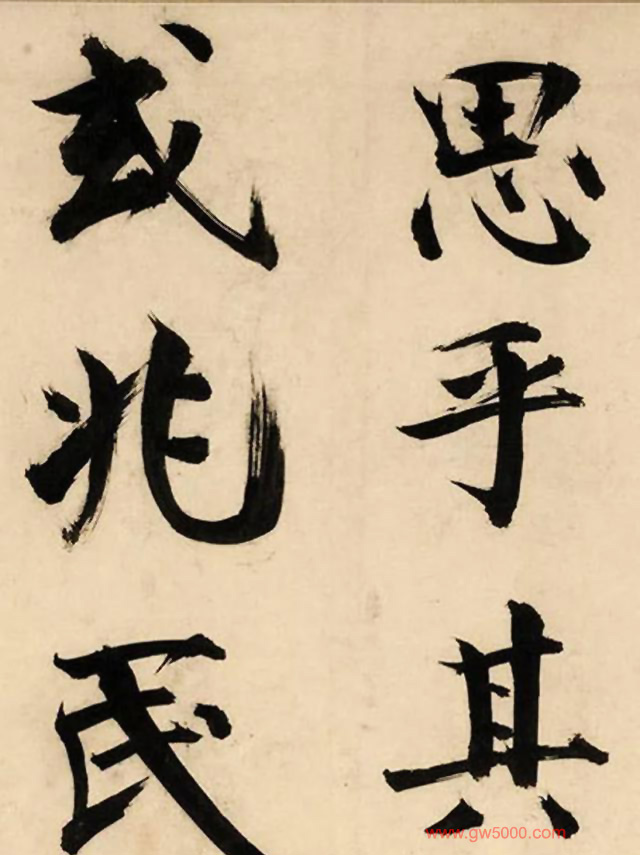 思乎其
或兆民
www.gw5000.com